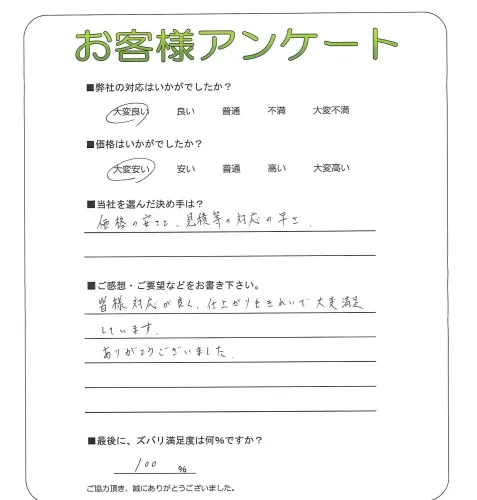 お客様アンケート
■弊社の対応はいかがでしたか？
大変良い 良い 普通 不満 大変不満
■価格はいかがでしたか？
大変安い 安い 普通 高い 大変高い
■当社を選んだ決め手は？
価格の安さと、見積等の対応の早さ.
■ご感想・ご要望などをお書き下さい。
皆様対応が良く、仕上がりもきれいで大変満足
しています.
ありがとうございました.
■最後に、ズバリ満足度は何%ですか？
100 %
ご協力頂き、誠にありがとうございました。